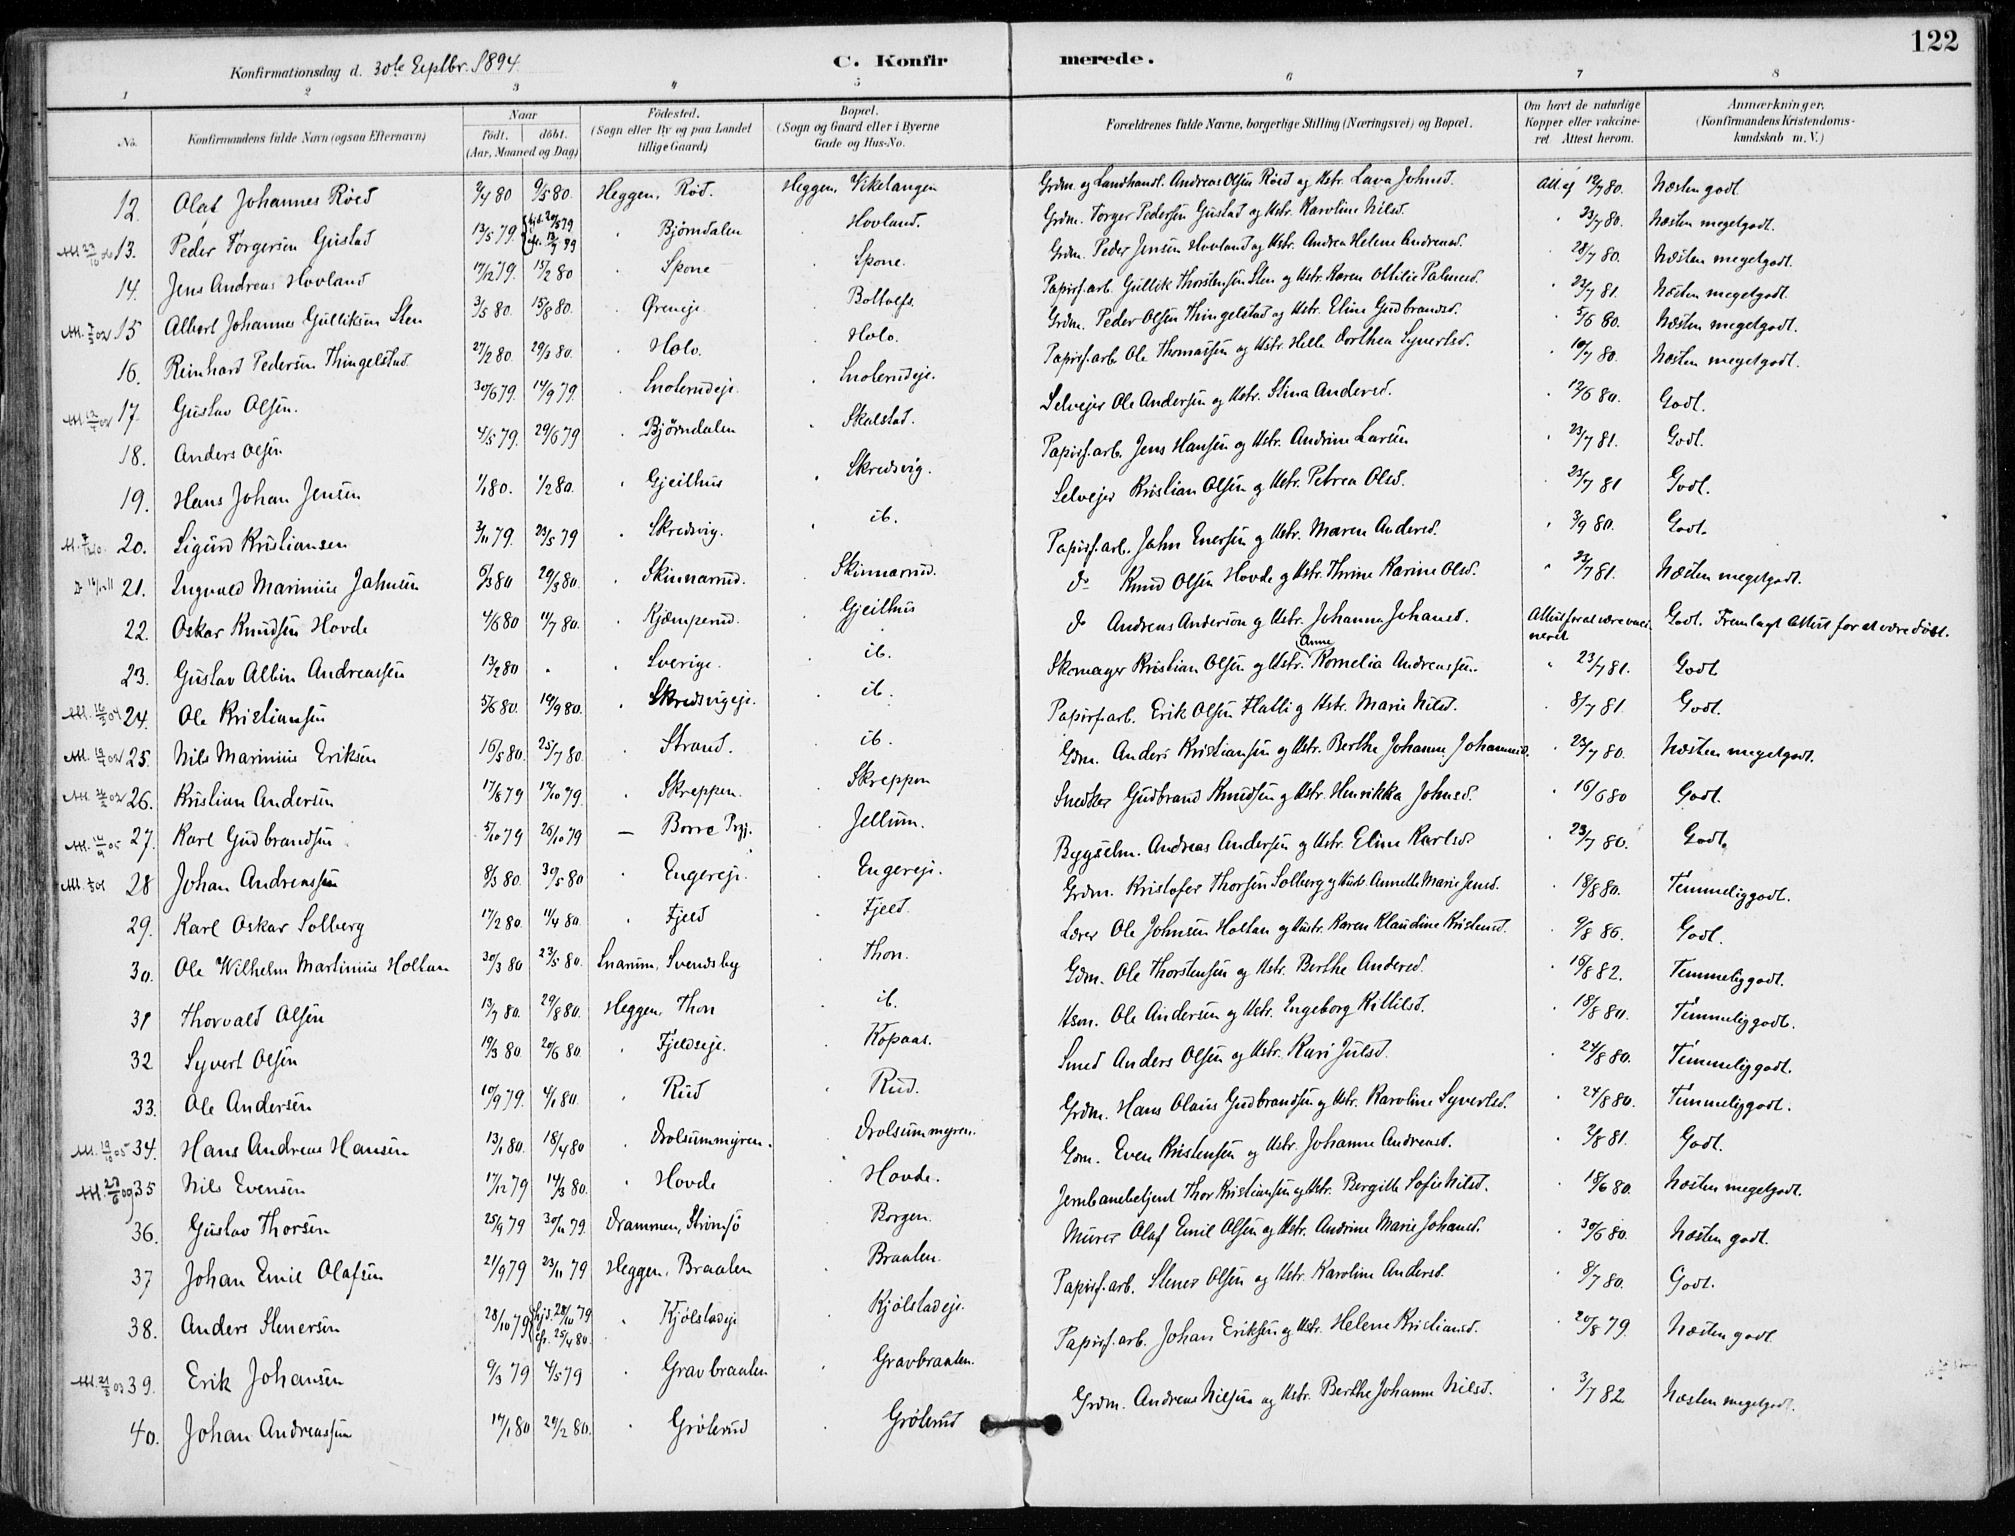 122
Konfirmationsdag d. 30te Septbr. 1894.
C. Konfirmerede.
1 2 3 4 5 6 7 8
No. Konfirmandens fulde Navn (ogsaa Efternavn) Naar født. døbt. (Aar, Maaned og Dag) Fødested. (Sogn eller By og paa Landet tillige Gaard) Bopæl. (Sogn og Gaard eller i Byerne Gade og Hus-No. Forældrenes fulde Navne, borgerlige Stilling (Næringsvei) og Bopæl. Om havt de naturlige Kopper eller vaccineret. Attest herom. Anmærkninger. (Konfirmandens Kristendomskundskab m. V.)
12. Olaf Johannes Röed 2/4 80 9/5 80. Heggen, Röd. Heggen, Vikelangen Grdm. og Landhandl. Andreas Olsen Röed og Hstr. Lava Johnsd. Att. af 12/7 80. Næsten godt
13. Peder Torgersen Gustad 13/5 79. Bjørndalen Hovland. Grdm. Torger Pedersen Gustad og Hstr. Karoline Nilsd. 23/7 80. Næsten megetgodt.
14. Jens Andreas Hovland 17/12 79. 15/2 80 Spone Spone. Grdm. Peder Jensen Hovland og Hstr. Andrea Helene Andreasd. 28/7 80. Næsten megetgodt.
15 Albert Johannes Gulliksen Sten 3/5 80. 15/8 80. Øreneje Bottolfs. Papirf.arb. Gullik Thorstensen Sten og Hstr. Karen Ottilie Palmesd. 23/7 81. Næsten megetgodt.
16. Reinhard Pedersen Thingelstad 27/2 80. 29/3 80. Holo. Holo. Grdm. Peder Olsen Thingelstad og Hstr. Eline Gudbrandsd. 5/6 80. Næsten megetgodt.
17. Gustav Olsen. 30/6 79. 14/9 79. Snolerudeje. Snolerudeje. Papirf.arb. Ole Thomassen og Hstr. Helle Dorthea Syvertsd. 10/7 80. Næsten megetgodt.
18. Anders Olsen 4/5 79. 29/6 79 Bjørndalen Skalstad. Selvejer Ole Andersen og Hstr. Stina Andersd. 12/6 80. Godt.
19. Hans Johan Jensen 1/1 80. 1/2 80. Gjeithus Skredsvig. Papirf.arb. Jens Hansen og Hstr. Andrine Larsen 23/7 81. Godt.
20. Sigurd Kristiansen 3/11 79. 23/5 79 Skredsvig. ib. Selvejer Kristian Olsen og Hstr. Petrea Olsd. 23/7 81 Godt.
21. Ingvald Marinius Jahnsen 6/3 80 29/3 80. Skinnarud. Skinnarud. Papirf.arb. Jahn Enersen og Hstr. Maren Andersd. 3/9 80. Godt.
22. Oskar Knudsen Hovde 4/6 80 11/7 80. Kjæmperud. Gjeithus do Knud Olsen Hovde og Hstr. Thrine Karine Olsd. 23/7 81. Næsten megetgodt.
23. Gustav Albin Andreassen 13/2 80 . Sverige. ib. do Andreas Anderson og Hstr. Johanna Johansd. Attest for at være vaccineret Godt. Fremlagt Attest for at være døbt.
24. Ole Kristiansen 5/6 80. 19/9 80. Skredsvigeje. ib. Skomager Kristian Olsen og Hstr. Anne Kornelia Andreassen. 23/7 81. Godt
25. Nils Marinius Eriksen 16/5 80. 25/7 80. Strand. ib. Papirf.arb. Erik Olsen Flatli og Hstr. Marie Nilsd. 8/7 81 Godt.
26. Kristian Andersen 17/8 79 12/10 79. Skreppen. Skreppen Gdm. Anders Kristiansen og Hstr. Berthe Johanne Johannesd. 23/7 80. Næsten megetgodt.
27. Karl Gudbrandsen 5/10 79 26/10 79 — Borre Prgj. Jellum. Snedker Gudbrand Knudsen og Hstr. Henrikka Johnsd. 16/6 80 Godt.
28 Johan Andreassen 8/3 80. 30/5 80 Engereje. Engereje. Bygselm. Andreas Andersen og Hstr. Eline Karlsd. 23/7 80. Godt.
29. Karl Oskar Solberg 17/2 80. 11/4 80. Fjeld Fjeld. Grdm. Kristofer Thorsen Solberg og Hustr. Annette Marie Jensd. 18/8 80. Temmeliggodt.
30. Ole Wilhelm Martinius Holtan 30/3 80 23/5 80. Snarum, Svendsby Thon. Lærer Ole Johnsen Holtan og Hustr. Karen Klaudine Kristensd. 9/8 86. Godt.
31 Thorvald Olsen 13/7 80. 29/8 80. Heggen, Thon ib. Gdm. Ole Thorstensen og Hstr. Berthe Andersd. 16/8 82. Temmeliggodt.
32 Syvert Olsen 19/3 80. 20/6 80. Fjeldseje. Kopaas. Hsm. Ole Andersen og Hstr. Engeborg Kittilsd. 18/8 80. Temmeliggodt.
33. Ole Andersen 10/9 79. 4/1 80. Rud Rud. Smed Anders Olsen og Hstr. Kari Julsd. 24/8 80. Temmeliggodt.
34. Hans Andreas Hansen 13/1 80. 18/4 80 Drolsummyren. Drolsummyren. Grdm. Hans Olaus Gudbrandsen og Hstr. Karoline Syvertsd. 24/8 80. Temmeliggodt.
35 Nils Evensen 17/12 79 14/3 80. Hovde Hovde. Gdm. Even Kristensen og Hstr. Johanne Andreasd. 2/8 81. Godt.
36. Gustav Thorsen 25/9 79 30/11 79. Drammen, Strømsö Borgen. Jernbanebetjent Thor Kristiansen og Hstr. Bergitte Sofie Nilsd. 18/6 80. Næsten megetgodt.
37 Johan Emil Olafsen 21/9 79 23/11 79 Heggen, Braaten Braaten. Murer Olaf Emil Olsen og Hstr. Andrine Marie Johansd. 30/6 80. Næsten godt.
38. Anders Stenersen 28/10 79 hjd. 28/10 79 Kjølstadeje Kjølstadeje. Papirf.arb. Stener Olsen og Hstr. Karoline Andersd. 8/7 80. Godt.
39. Erik Johansen 9/3 79 4/5 79 Gravbraaten Gravbraaten. Papirf.arb. Johan Eriksen og Hstr. Helene Kristiansd. 20/8 79. Næsten godt
40. Johan Andreassen 14/1 80 29/2 80. Grölerud Grölerud Grdm. Andreas Nilsen og Hstr. Berthe Johanne Nilsd. 3/7 82 Næsten megetgodt.